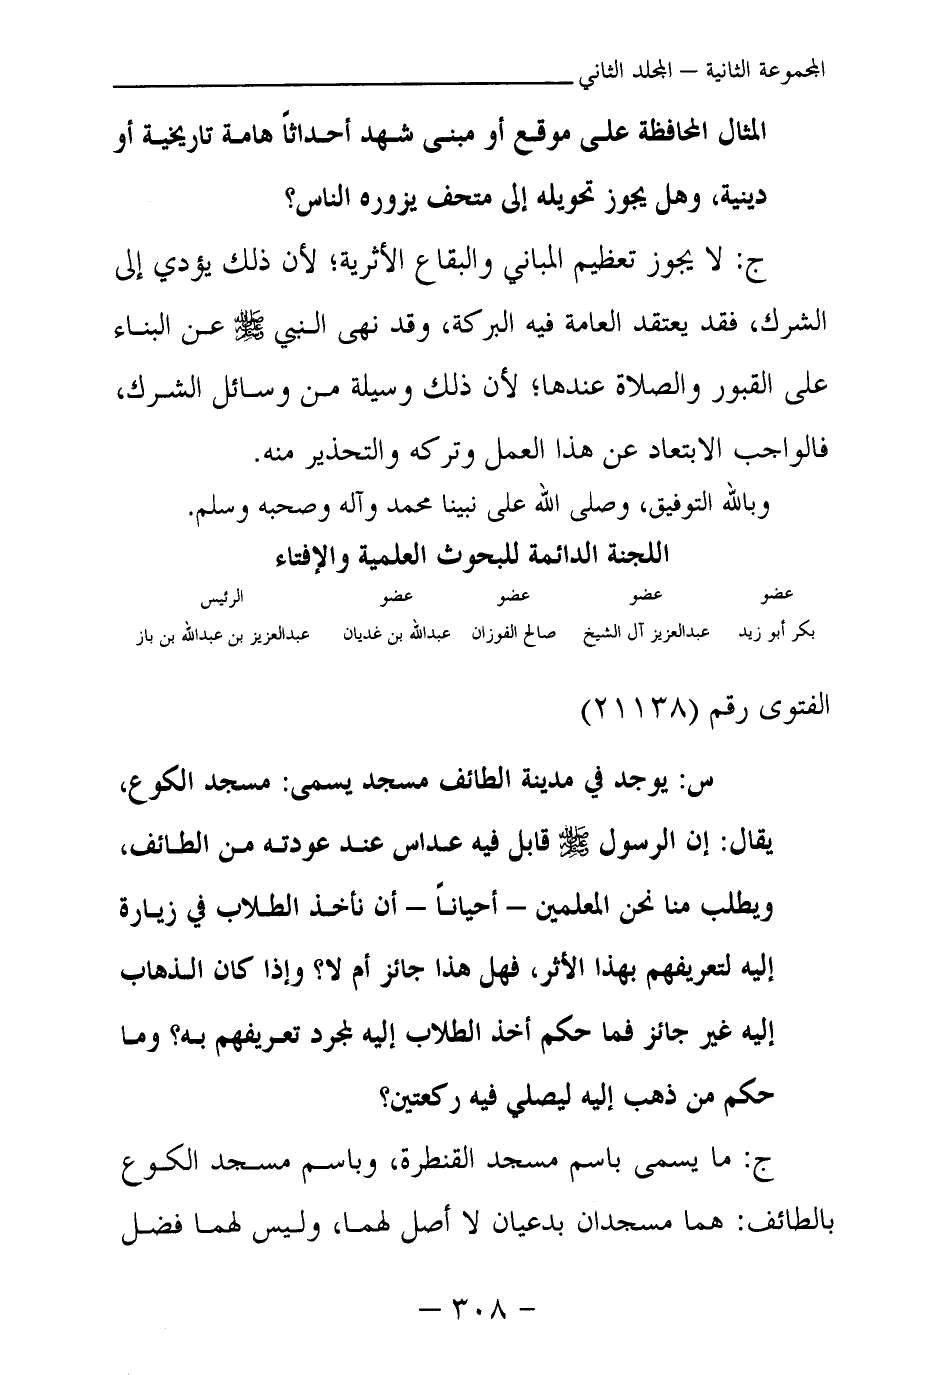 المجموعة الثانية – المجلد الثاني
المثال المحافظة على موقع أو مبنى شهد أحداثاً هامة تاريخية أو
دينية، وهل يجوز تحويله إلى متحف يزوره الناس؟
ج: لا يجوز تعظيم المباني والبقاع الأثرية؛ لأن ذلك يؤدي إلى
الشرك، فقد يعتقد العامة فيه البركة، وقد نهى النبي ﷺ عن البناء
على القبور والصلاة عندها؛ لأن ذلك وسيلة من وسائل الشرك،
فالواجب الابتعاد عن هذا العمل وتركه والتحذير منه.
وبالله التوفيق، وصلى الله على نبينا محمد وآله وصحبه وسلم.
اللجنة الدائمة للبحوث العلمية والإفتاء
عضو عضو عضو عضو الرئيس
بكر أبو زيد عبدالعزيز آل الشيخ صالح الفوزان عبدالله بن غديان عبدالعزيز بن عبدالله بن باز
الفتوى رقم (٢١١٣٨)
س: يوجد في مدينة الطائف مسجد يسمى: مسجد الكوع،
يقال: إن الرسول ﷺ قابل فيه عداس عند عودته من الطائف،
ويطلب منا نحن المعلمين – أحياناً – أن نأخذ الطلاب في زيارة
إليه لتعريفهم بهذا الأثر، فهل هذا جائز أم لا؟ وإذا كان الذهاب
إليه غير جائز فما حكم أخذ الطلاب إليه لمجرد تعريفهم به؟ وما
حكم من ذهب إليه ليصلي فيه ركعتين؟
ج: ما يسمى باسم مسجد القنطرة، وباسم مسجد الكوع
بالطائف: هما مسجدان بدعيان لا أصل لهما، وليس لهما فضل
– ٣٠٨ –